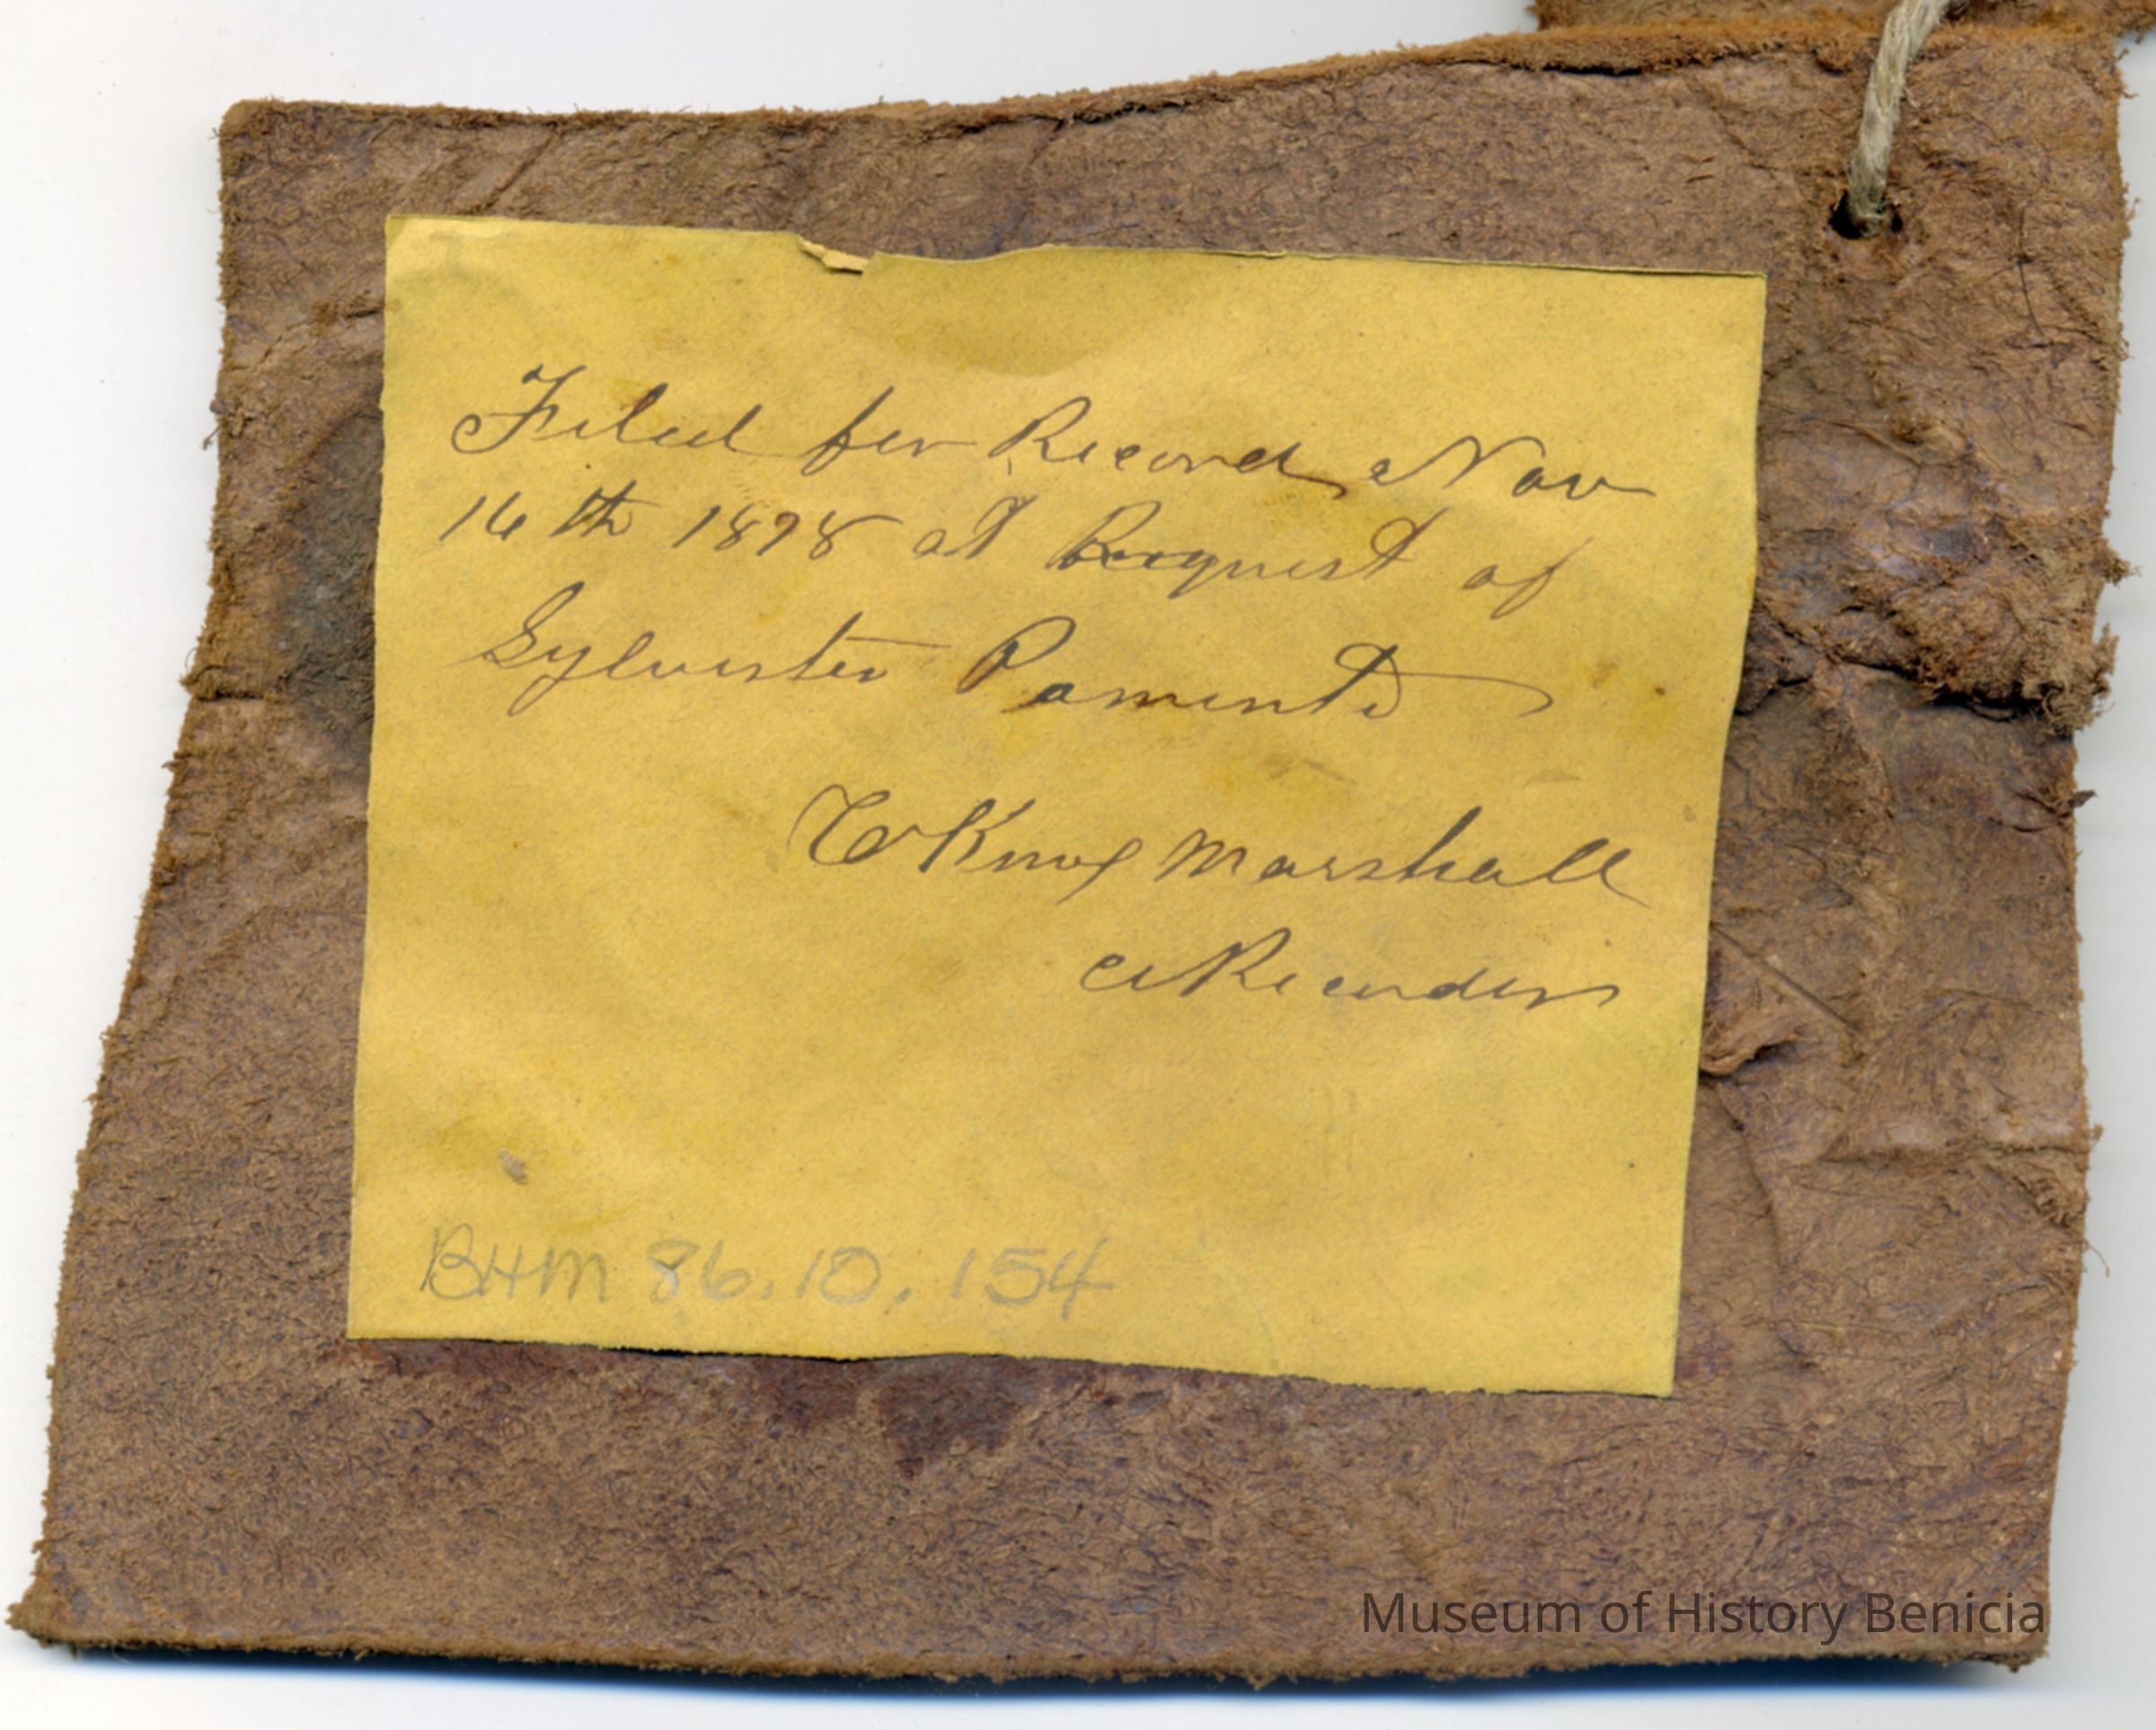 Filed for Record Nov
16th 1898 at Request of
Sylvester Pamento
C Knox Marshall
Co Recorder
BHM 86.10.154
Museum of History Benicia